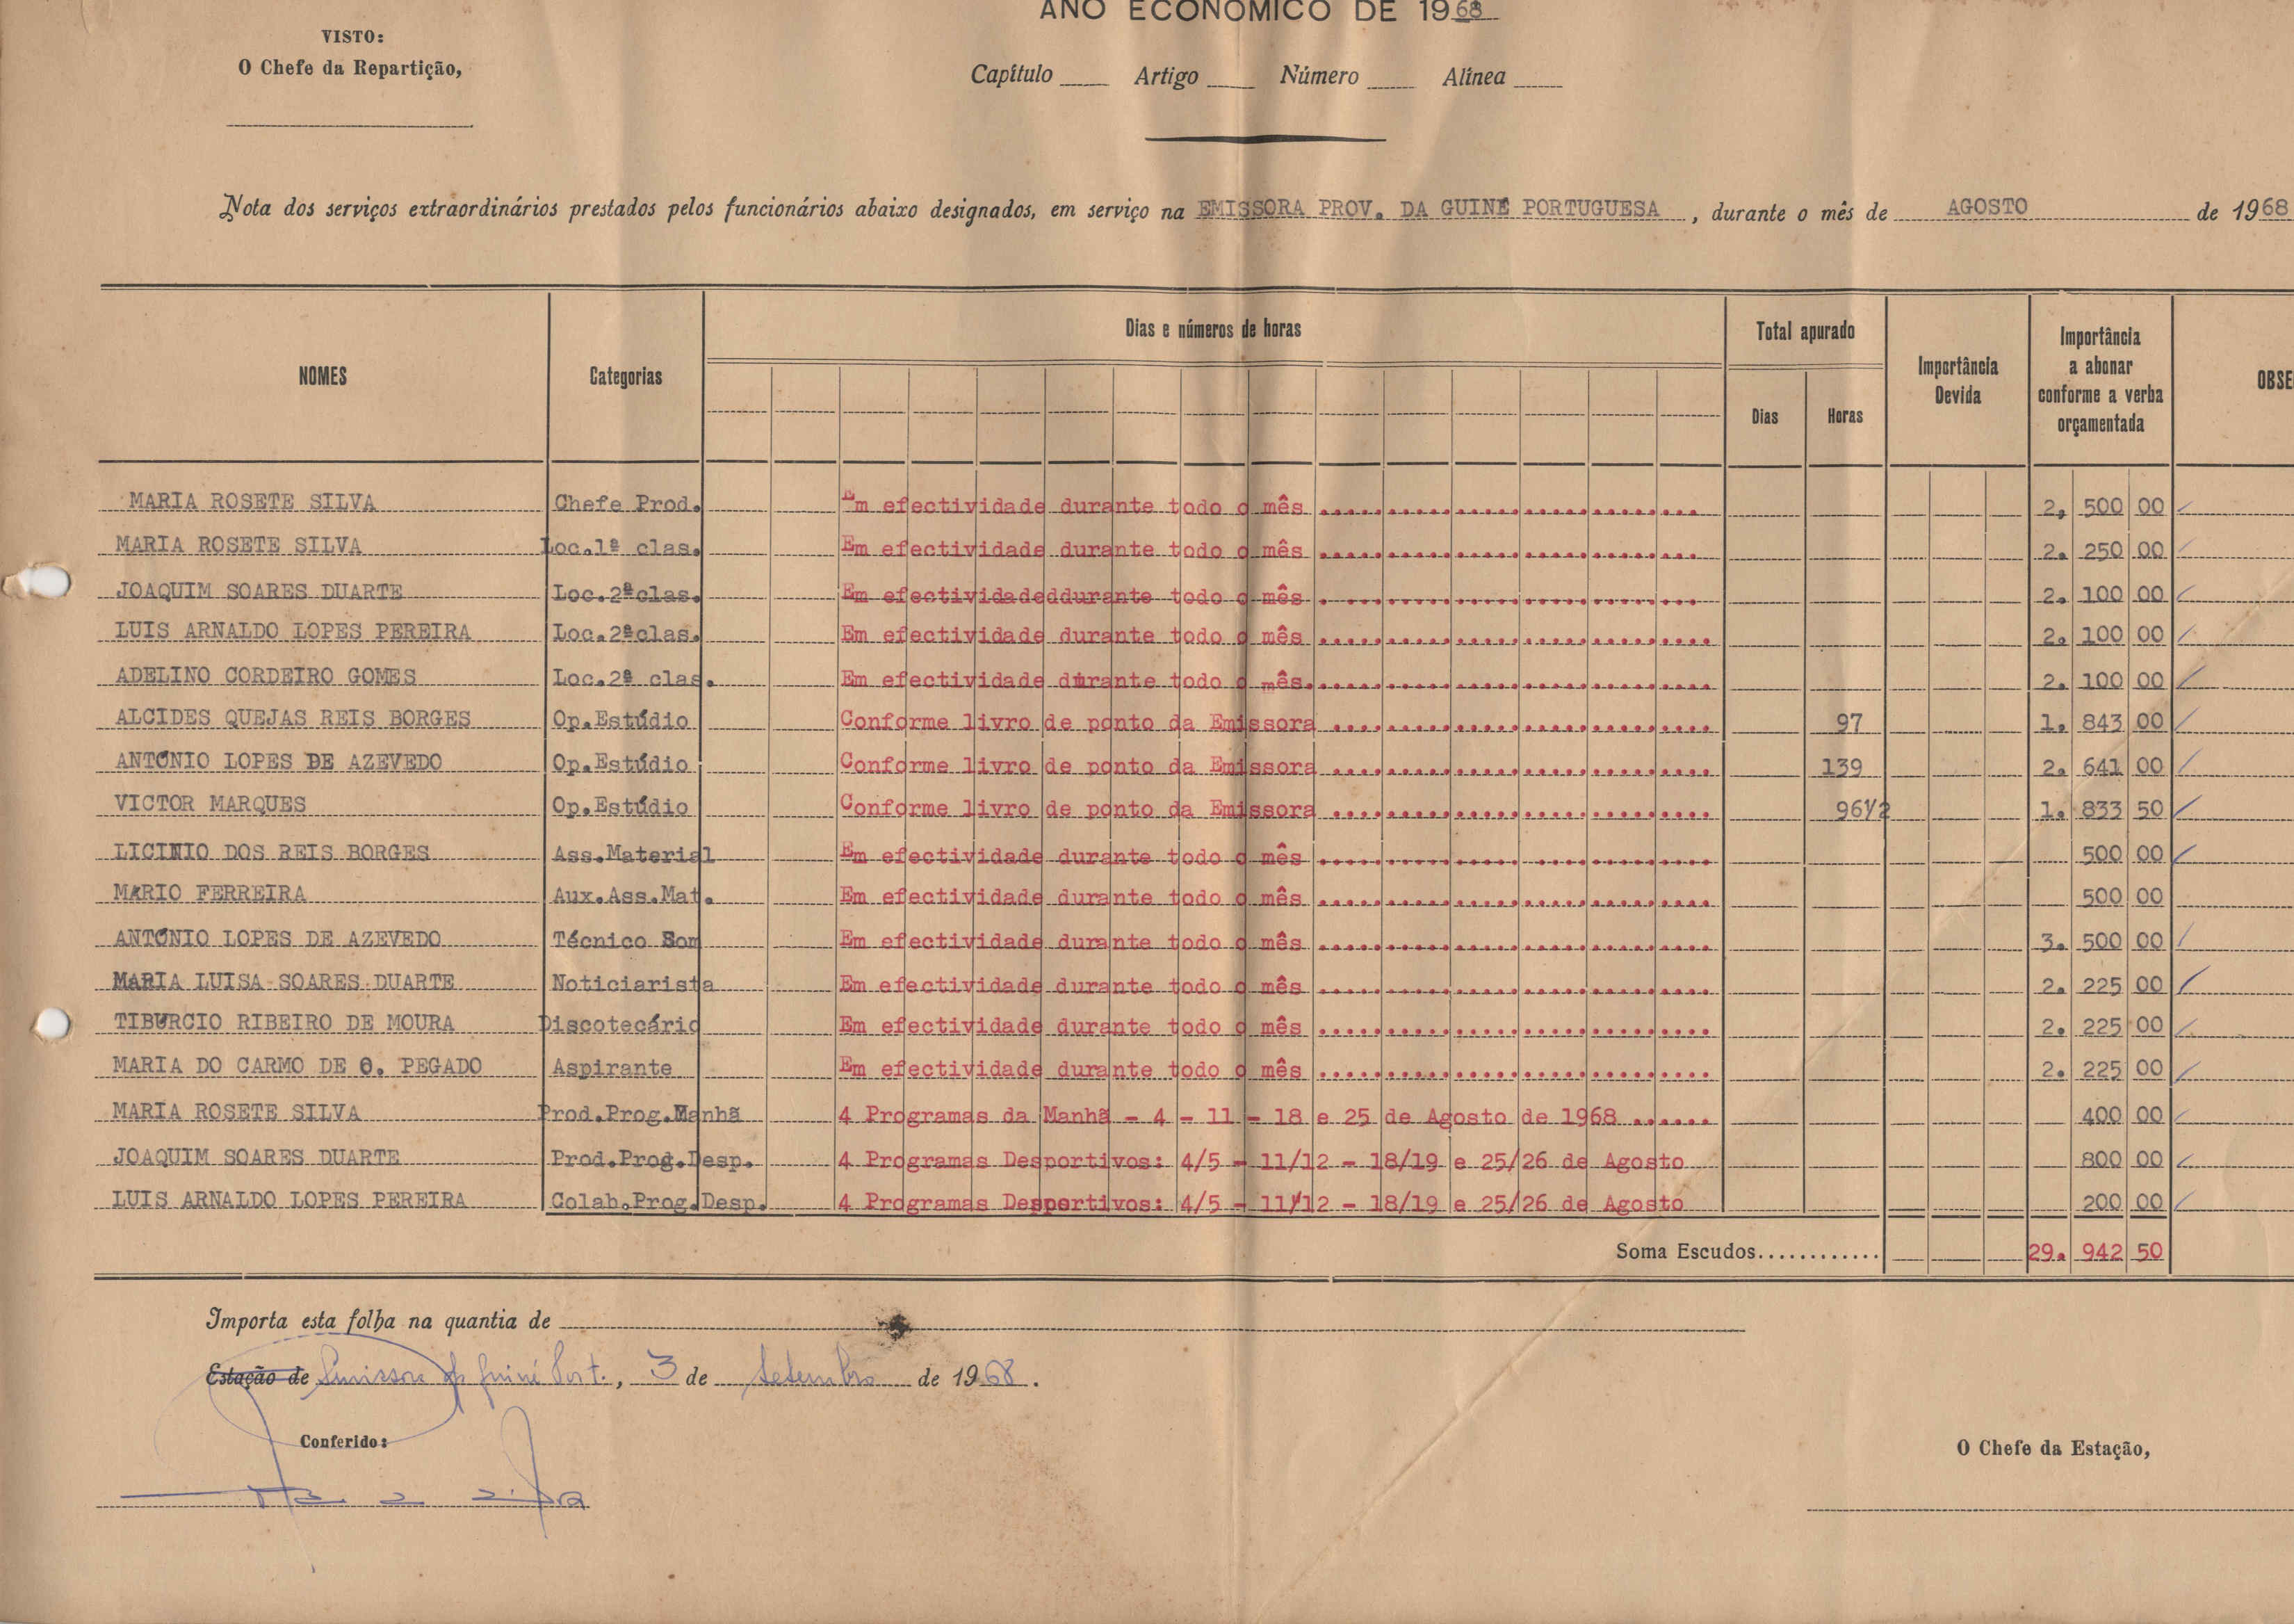 ANO ECONÓMICO DE 1968
VISTO:
O Chefe da Repartição,
Capítulo Artigo Número Alínea
Nota dos serviços extraordinários prestados pelos funcionários abaixo designados, em serviço na EMISSORA PROV. DA GUINÉ PORTUGUESA, durante o mês de AGOSTO de 1968
NOMES Categorias Dias e números de horas Total apurado Dias Horas Importância Devida Importância a abonar conforme a verba orçamentada OBSE
MARIA ROSETE SILVA Chefe Prod. Em efectividade durante todo o mês ............................ 2, 500 00
MARIA ROSETE SILVA Loc.1ª clas. Em efectividade durante todo o mês ............................ 2. 250 00
JOAQUIM SOARES DUARTE Loc.2ªclas. Em efectividadeddurante todo o mês ............................ 2. 100 00
LUIS ARNALDO LOPES PEREIRA Loc.2ªclas. Em efectividade durante todo o mês ............................ 2. 100 00
ADELINO CORDEIRO GOMES Loc.2ª clas. Em efectividade durante todo o mês............................. 2. 100 00
ALCIDES QUEJAS REIS BORGES Op.Estúdio Conforme livro de ponto da Emissora ............................ 97 1. 843 00
ANTÓNIO LOPES DE AZEVEDO Op.Estúdio Conforme livro de ponto da Emissora ............................ 139 2. 641 00
VICTOR MARQUES Op.Estúdio Conforme livro de ponto da Emissora ............................ 96½ 1. 833 50
LICINIO DOS REIS BORGES Ass.Material Em efectividade durante todo o mês ............................ 500 00
MARIO FERREIRA Aux.Ass.Mat. Em efectividade durante todo o mês ............................ 500 00
ANTÓNIO LOPES DE AZEVEDO Técnico Som Em efectividade durante todo o mês ............................ 3. 500 00
MARIA LUISA SOARES DUARTE Noticiarista Em efectividade durante todo o mês ............................ 2. 225 00
TIBURCIO RIBEIRO DE MOURA Discotecário Em efectividade durante todo o mês ............................ 2. 225 00
MARIA DO CARMO DE O. PEGADO Aspirante Em efectividade durante todo o mês ............................ 2. 225 00
MARIA ROSETE SILVA Prod.Prog.Manhã 4 Programas da Manhã - 4 - 11 - 18 e 25 de Agosto de 1968 ....... 400 00
JOAQUIM SOARES DUARTE Prod.Prog.Desp. 4 Programas Desportivos: 4/5 - 11/12 - 18/19 e 25/26 de Agosto 800 00
LUIS ARNALDO LOPES PEREIRA Colab.Prog.Desp. 4 Programas Desportivos: 4/5 - 11/12 - 18/19 e 25/26 de Agosto 200 00
Soma Escudos............ 29. 942 50
Importa esta folha na quantia de
Estação de Emissora da Guiné Port., 3 de Setembro de 1968.
Conferido:
O Chefe da Estação,